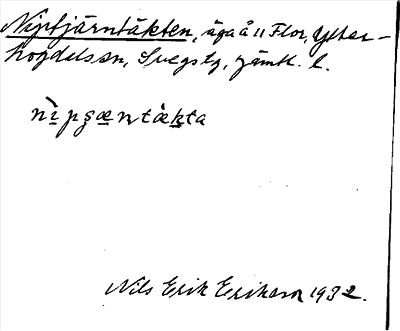 Niptjärntäkten, äga å 11 Flor, Ytter-
hogdals sn, Svegs tg, Jämtl. l.
nìpʂæṇtàkta
Nils Erik Erikson 1932.